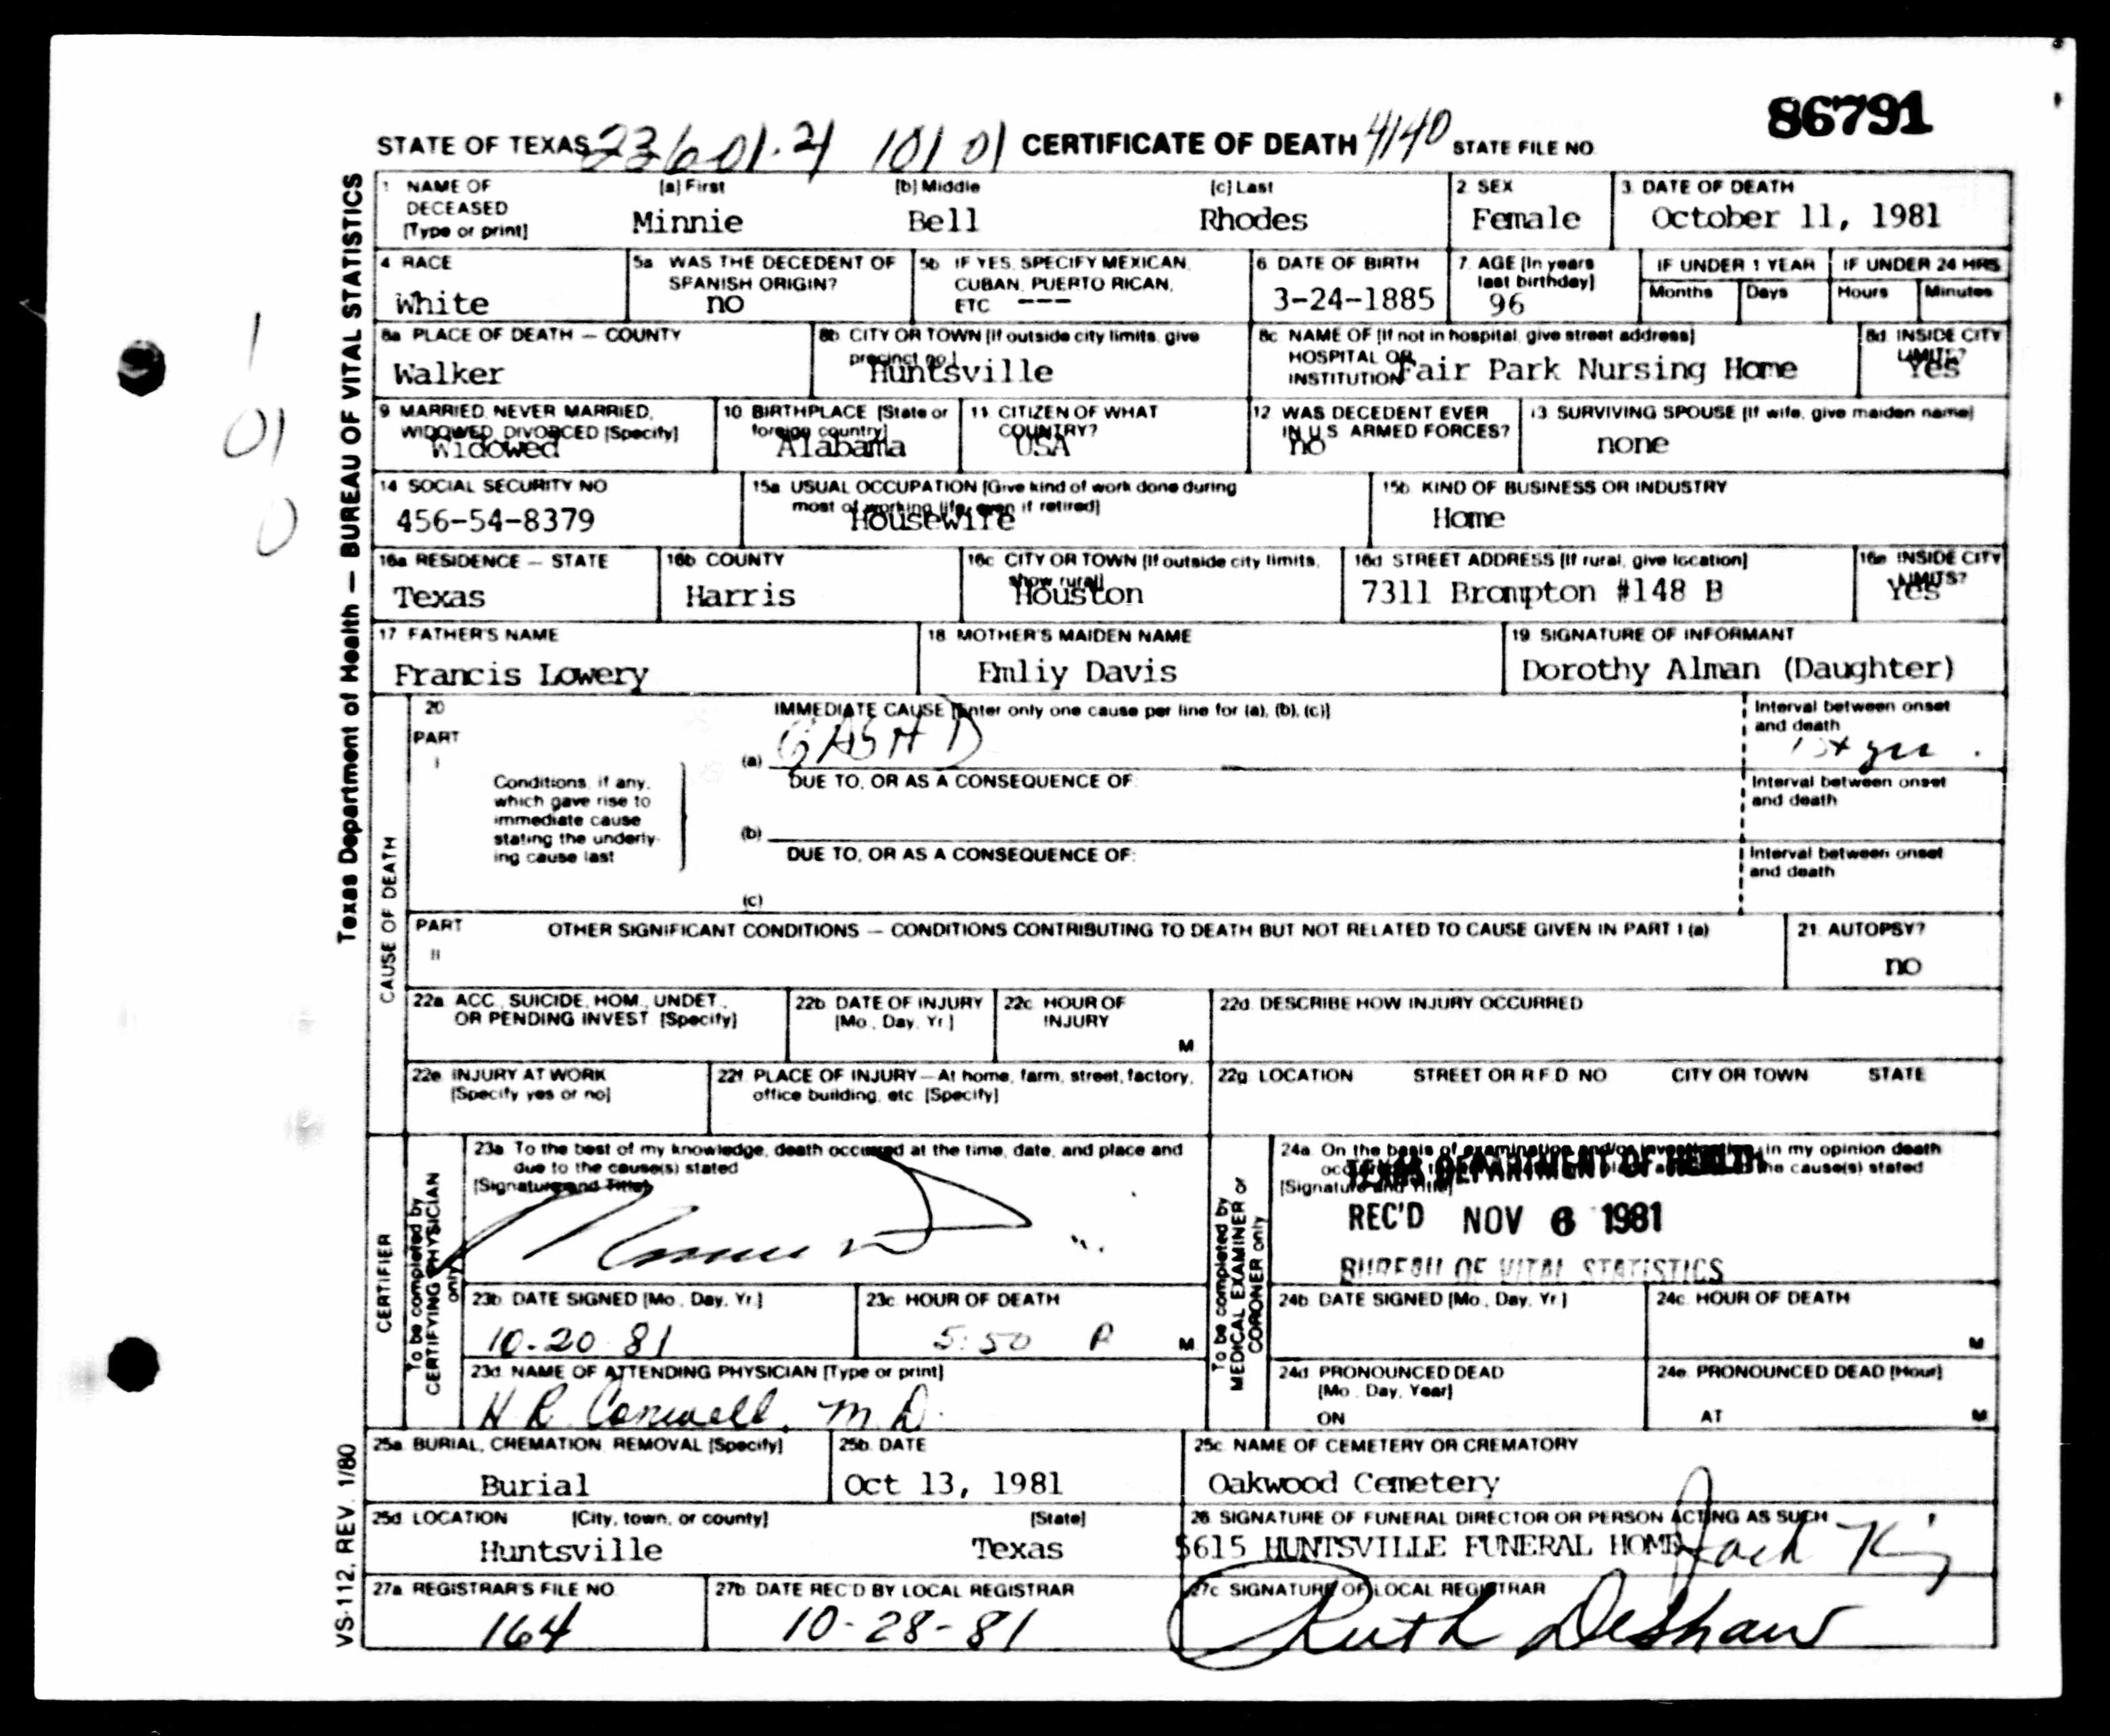 86791
STATE OF TEXAS 23601.21 101 01 CERTIFICATE OF DEATH 4140 STATE FILE NO.
Texas Department of Health — BUREAU OF VITAL STATISTICS
1 NAME OF DECEASED [Type or print] [a] First [b] Middle [c] Last 2 SEX 3 DATE OF DEATH
Minnie Bell Rhodes Female October 11, 1981
4 RACE 5a WAS THE DECEDENT OF SPANISH ORIGIN? 5b IF YES, SPECIFY MEXICAN, CUBAN, PUERTO RICAN, ETC 6 DATE OF BIRTH 7 AGE [In years last birthday] IF UNDER 1 YEAR Months Days IF UNDER 24 HRS Hours Minutes
White no --- 3-24-1885 96
8a PLACE OF DEATH — COUNTY 8b CITY OR TOWN [If outside city limits, give precinct no.] 8c NAME OF [If not in hospital, give street address] HOSPITAL OR INSTITUTION 8d INSIDE CITY LIMITS?
Walker Huntsville Fair Park Nursing Home Yes
9 MARRIED, NEVER MARRIED, WIDOWED, DIVORCED [Specify] 10 BIRTHPLACE [State or foreign country] 11 CITIZEN OF WHAT COUNTRY? 12 WAS DECEDENT EVER IN U.S. ARMED FORCES? 13 SURVIVING SPOUSE [If wife, give maiden name]
Widowed Alabama USA no none
14 SOCIAL SECURITY NO 15a USUAL OCCUPATION [Give kind of work done during most of working life, even if retired] 15b KIND OF BUSINESS OR INDUSTRY
456-54-8379 Housewife Home
16a RESIDENCE — STATE 16b COUNTY 16c CITY OR TOWN [If outside city limits, show rural] 16d STREET ADDRESS [If rural, give location] 16e INSIDE CITY LIMITS?
Texas Harris Houston 7311 Brompton #148 B Yes
17 FATHER'S NAME 18 MOTHER'S MAIDEN NAME 19 SIGNATURE OF INFORMANT
Francis Lowery Emliy Davis Dorothy Alman (Daughter)
CAUSE OF DEATH
20 PART I IMMEDIATE CAUSE [Enter only one cause per line for (a), (b), (c)] Interval between onset and death
(a) GASHD
Conditions, if any, which gave rise to immediate cause stating the underlying cause last
DUE TO, OR AS A CONSEQUENCE OF: Interval between onset and death
(b)
DUE TO, OR AS A CONSEQUENCE OF: Interval between onset and death
(c)
PART II OTHER SIGNIFICANT CONDITIONS — CONDITIONS CONTRIBUTING TO DEATH BUT NOT RELATED TO CAUSE GIVEN IN PART I (a) 21 AUTOPSY?
no
22a ACC., SUICIDE, HOM., UNDET., OR PENDING INVEST. [Specify] 22b DATE OF INJURY [Mo., Day, Yr.] 22c HOUR OF INJURY M 22d DESCRIBE HOW INJURY OCCURRED
22e INJURY AT WORK [Specify yes or no] 22f PLACE OF INJURY—At home, farm, street, factory, office building, etc. [Specify] 22g LOCATION STREET OR R.F.D. NO CITY OR TOWN STATE
CERTIFIER
To be completed by CERTIFYING PHYSICIAN only
23a To the best of my knowledge, death occurred at the time, date, and place and due to the cause(s) stated
[Signature and Title]
To be completed by MEDICAL EXAMINER or CORONER only
24a On the basis of examination and/or investigation, in my opinion death the cause(s) stated
[Signature and Title]
TEXAS DEPARTMENT OF HEALTH
REC'D NOV 6 1981
BUREAU OF VITAL STATISTICS
23b DATE SIGNED [Mo., Day, Yr.] 23c HOUR OF DEATH 24b DATE SIGNED [Mo., Day, Yr.] 24c HOUR OF DEATH
10-20 81 5:50 P M M
23d NAME OF ATTENDING PHYSICIAN [Type or print] 24d PRONOUNCED DEAD [Mo., Day, Year] ON 24e PRONOUNCED DEAD [Hour] AT M
H R Conwell, M D.
25a BURIAL, CREMATION, REMOVAL [Specify] 25b DATE 25c NAME OF CEMETERY OR CREMATORY
Burial Oct 13, 1981 Oakwood Cemetery
25d LOCATION [City, town, or county] [State] 26 SIGNATURE OF FUNERAL DIRECTOR OR PERSON ACTING AS SUCH
Huntsville Texas 5615 HUNTSVILLE FUNERAL HOME Jack King
27a REGISTRAR'S FILE NO 27b DATE REC'D BY LOCAL REGISTRAR 27c SIGNATURE OF LOCAL REGISTRAR
164 10-28-81 Ruth DeShaw
VS-112, REV. 1/80
1
01
0